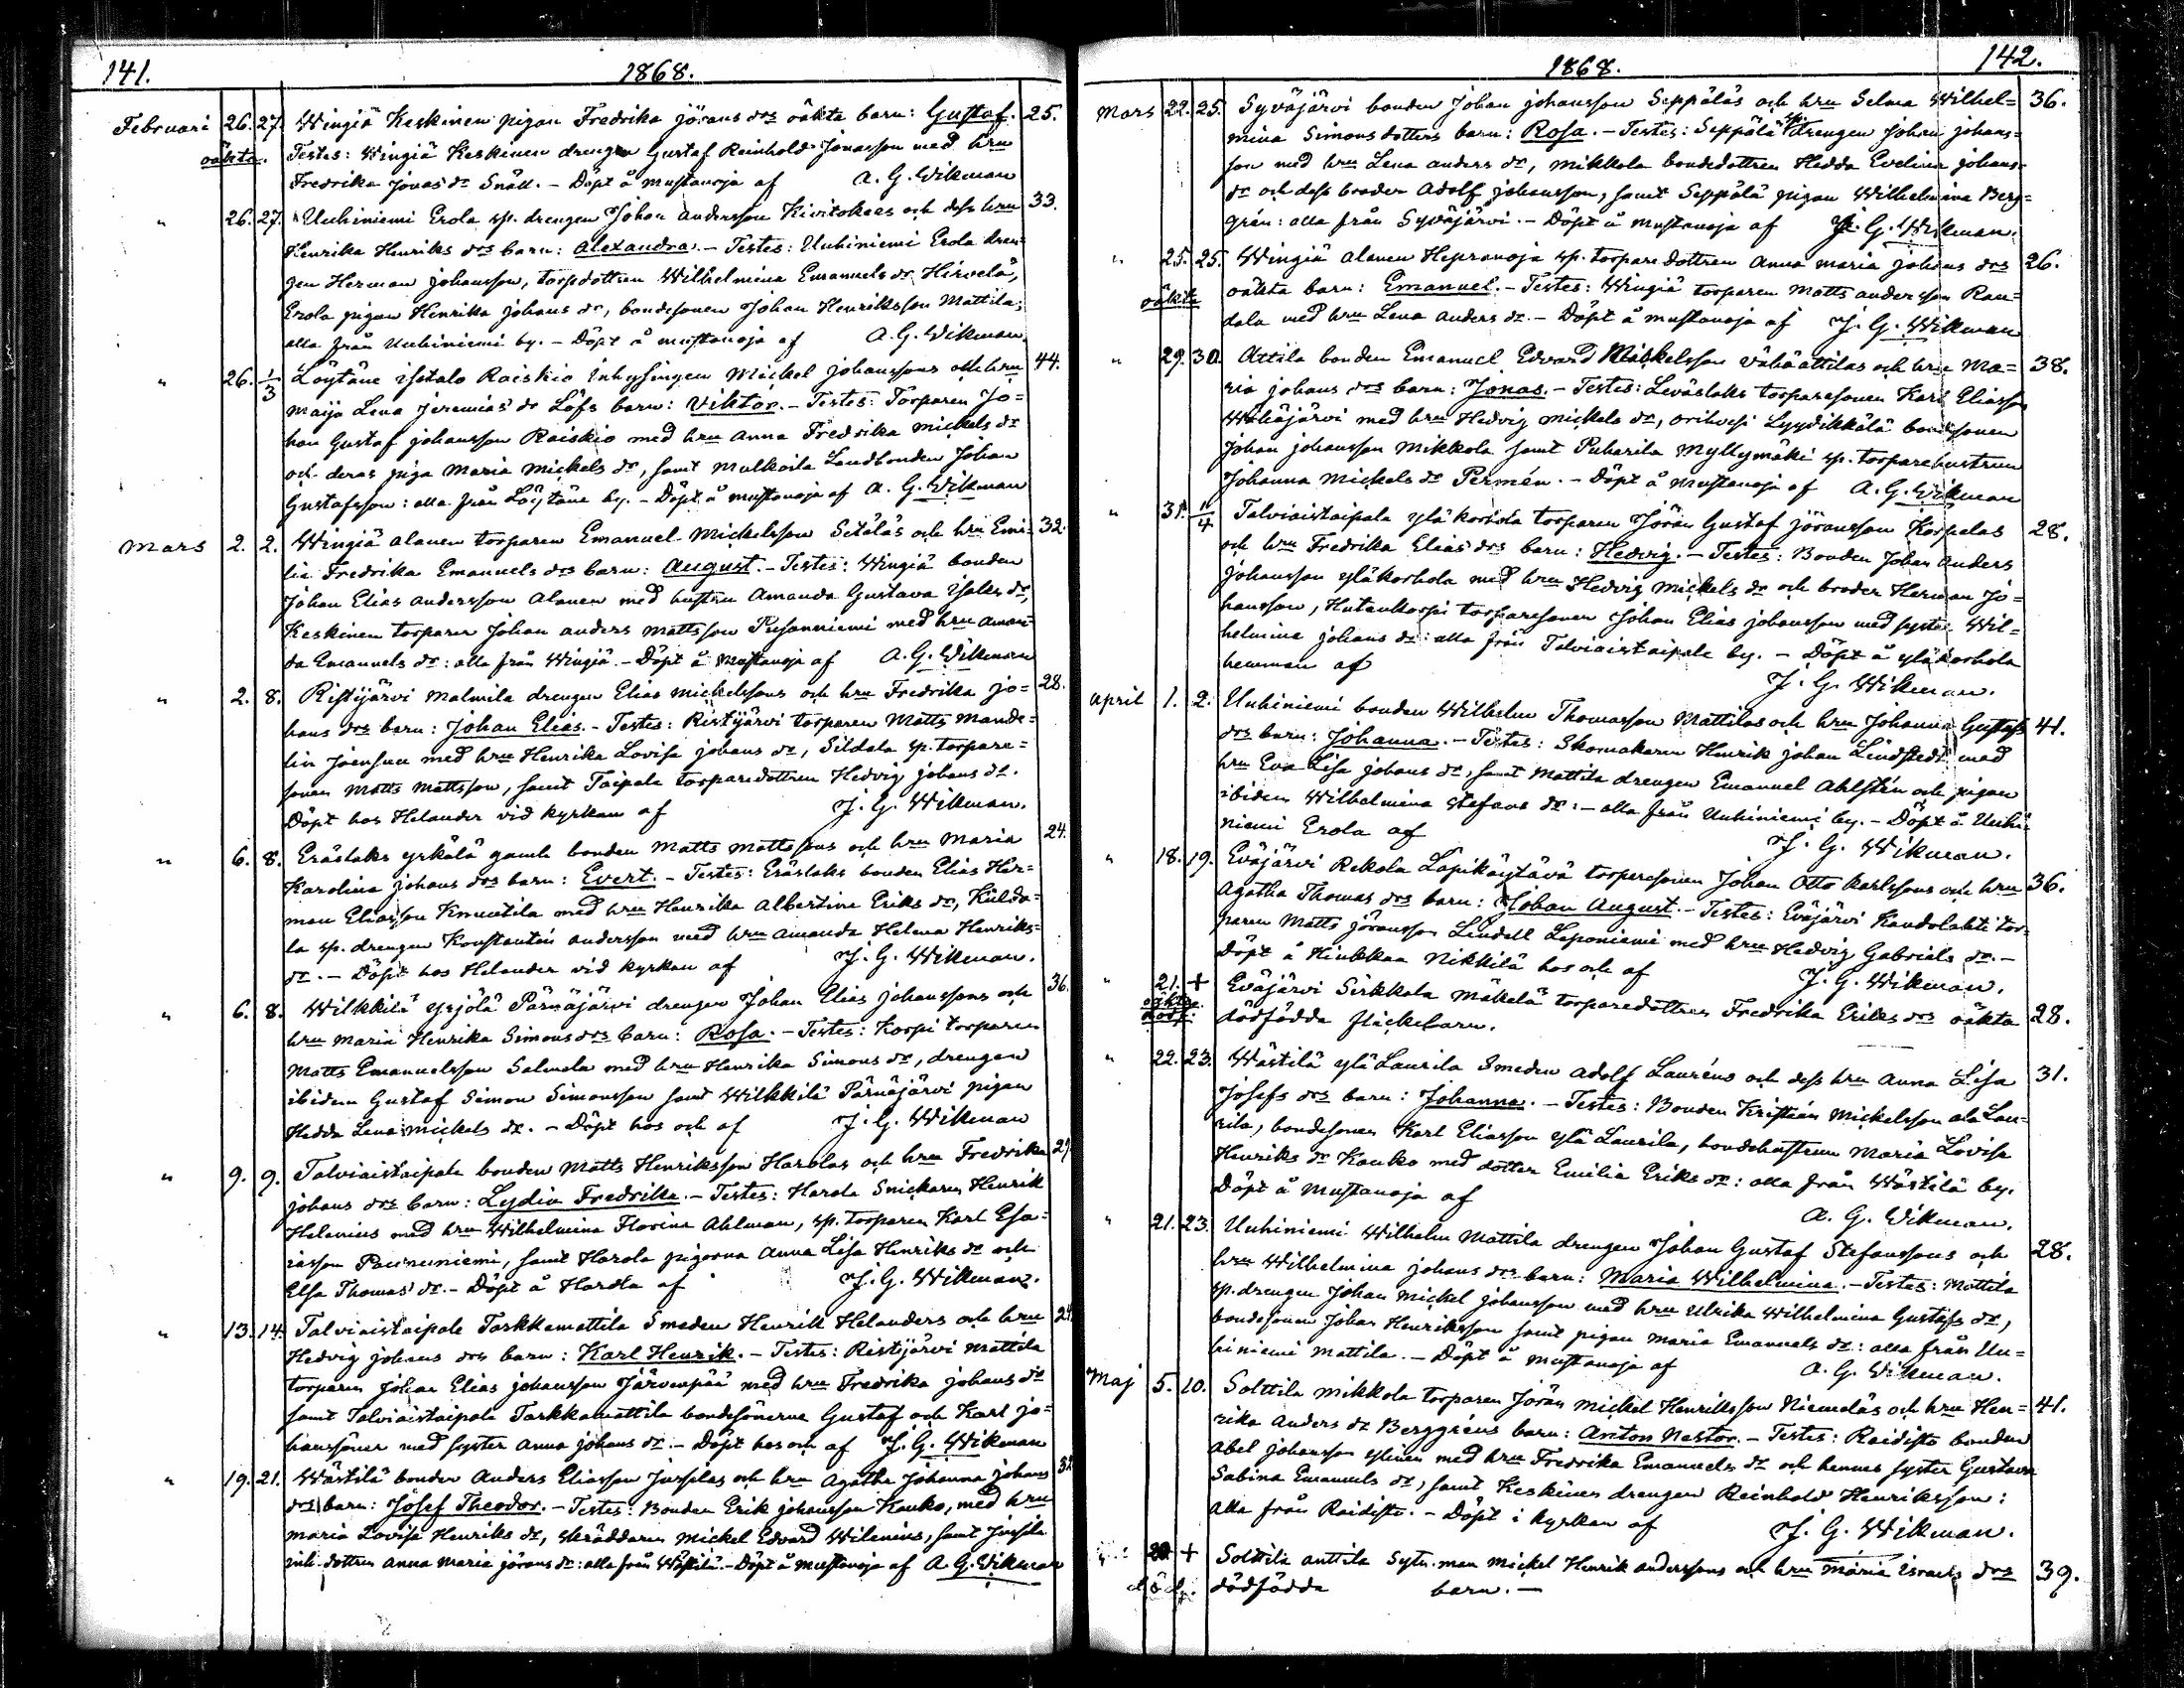 141.
1868.
Februari 26. 27. Wingiä Keskinen pigan Fredrika jörans drs oäkta barn: Gustaf. 25.
oäkta. Testes: Wingiä Keskinen drengen Gustaf Reinhold Jonasson med hru
Fredrika Jonas dr Snäll. - Döpt å Mustanoja af A. G. Wikman
" 26. 27. Uuhiniemi Erola sp. drengen Johan Andersson Kivitokaas och dess hru 33.
Henrika Henriks drs barn: Alexandra. - Testes: Uuhiniemi Erola dren=
gen Herman Johansson, torpdottren Wilhelmina Emanuels dr Hirvelä,
Erola pigan Henrika Johans dr, bondesonen Johan Henriksson Mattila;
alla från Uuhiniemi by. - Döpt å Mustanoja af A. G. Wikman.
" 26. 1/3 Löytäne Isotalo Raiskio Inhysingen Mickel Johanssons och hru 44.
Maija Lena Jeremias dr Löfs barn: Viktor. - Testes: Torparen Jo=
han Gustaf Johansson Raiskio med hru Anna Fredrika Mickels dr
och deras piga Maria Mickels dr, samt Mulkoila Landbonden Johan
Gustafsson: alla från Löytäne by. - Döpt å Mustanoja af A. G. Wikman
Mars 2. 2. Wingiä Alanen torparen Emanuel Mickelsson Setäläs och hru Emi= 32.
lia Fredrika Emanuels drs barn: August. - Testes: Wingiä bonden
Johan Elias Andersson Alanen med hustru Amanda Gustava Isaks dr,
Keskinen torparen Johan Anders Mattsson Pusanniemi med hru Aman=
da Emanuels dr: alla från Wingiä. - Döpt å Mustanoja af A. G. Wikman
" 2. 8. Ristijärvi Malmila drengen Elias Mickelssons och hru Fredrika Jo= 28.
hans drs barn: Johan Elias. - Testes: Ristijärvi torparen Matts Mande=
lin Joensuu med hru Henrika Lovisa Johans dr, Sildala sp. torpare=
sonen Matts Mattsson, samt Taipale torparedottren Hedvig Johans dr.
Döpt hos Helander vid kyrkan af J. G. Wikman.
" 6. 8. Eräslaks Yrkälä gamle bonden Matts Mattssons och hru Maria 24.
Karolina Johans drs barn: Evert. - Testes: Eräslaks bonden Elias Her=
man Eliasson Knuutila med hru Henrika Albertina Eriks dr, Kulda=
la sp. drengen Konstantin Andersson med hru Amanda Helena Henriks=
dr. - Döpt hos Helander vid kyrkan af J. G. Wikman.
" 6. 8. Wilkkilä Yrjölä Pärnäjärvi drengen Johan Elias Johanssons och 36.
hru Maria Henrika Simons drs barn: Rosa. - Testes: Korpi torparen
Matts Emanuelsson Salmela med hru Henrika Simons dr, drengen
ibidem Gustaf Simon Simonsson samt Wilkkilä Pärnäjärvi pigan
Hedda Lena Mickels dr. - Döpt hos och af J. G. Wikman
" 9. 9. Talviaistaipale bonden Matts Henriksson Harolas och hru Fredrika 29
Johans drs barn: Lydia Fredrika. - Testes: Harola Snickaren Henrik
Helenius med hru Wilhelmina Florina Ahlman, sp. torparen Karl Esa=
iasson Paununiemi, samt Harola pigorna Anna Lisa Henriks dr och
Elsa Thomas dr. - Döpt å Harola af J. G. Wikman.
" 13. 14. Talviaistaipale Tarkkamattila Smeden Henrik Helanders och hru 24
Hedvig Johans drs barn: Karl Henrik. - Testes: Ristijärvi Mattila
torparen Johan Elias Johansson Järvenpää med hru Fredrika Johans dr
samt Talviaistaipale Tarkkamattila bondesönerne Gustaf och Karl Jo=
hanssöner med syster Anna Johans dr. - Döpt hos och af J. G. Wikman
" 19. 21. Wästilä bonden Anders Eliasson Jussilas och hru Agatha Johanna Johans 32
drs barn: Josef Theodor. - Testes: Bonden Erik Johansson Kauko, med hru
Maria Lovisa Henriks dr, Skräddaren Mickel Edvard Wilenius, samt Jussila
inh. dottren Anna Maria Jörans dr: alla från Wästilä. - Döpt å Mustanoja af A. G. Wikman
1868.
142.
Mars 22. 25. Syväjärvi bonden Johan Johansson Seppäläs och hru Selma Wilhel= 36.
mina Simons dotters barn: Rosa. - Testes: Seppälä sp. drengen Johan Johans=
son med hru Lena Anders dr, Mikkola bondedottren Hedda Evelina Johans=
dr och dess broder Adolf Johansson, samt Seppälä pigan Wilhelmina Berg=
grén: alla från Syväjärvi. - Döpt å Mustanoja af J. G. Wikman.
" 25. 25. Wingiä Alanen Hepranoja sp. torparedottren Anna Maria Johans drs 26.
oäkta oäkta barn: Emanuel. - Testes: Wingiä torparen Matts Andersson Ran=
dala med hru Lena Anders dr. - Döpt å Mustanoja af J. G. Wikman
" 29. 30. Attila bonden Emanuel Edvard Mickelsson Vähäattilas och hru Ma= 38.
ria Johans drs barn: Jonas. - Testes: Leväslaks torparesonen Karl Eliasson
Wähäjärvi med hru Hedvig Mickels dr, Orihvesi Lyydikkälä bondsonen
Johan Johansson Mikkola samt Puharila Myllymäki sp. torparehustrun
Johanna Mickels dr Permén. - Döpt å Mustanoja af A. G. Wikman
" 31. 11/4 Talviaistaipale Yläkorhola torparen Jöran Gustaf Jöransson Korpelas 28.
och hru Fredrika Elias drs barn: Hedvig. - Testes: Bonden Johan Anders
Johansson Yläkorhola med hru Hedvig Mickels dr och broder Herman Jo=
hansson, Hutankorpi torparesonen Johan Elias Johansson med syster Wil=
helmina Johans dr: alla från Talviaistaipale by. - Döpt å Yläkorhola
hemman af J. G. Wikman.
April 1. 2. Uuhiniemi bonden Wilhelm Thomasson Mattilas och hru Johanna Gustafs 41.
drs barn: Johanna. - Testes: Skomakaren Henrik Johan Lindstedt med
hru Eva Lisa Johans dr, samt Mattila drengen Emanuel Ahlstén och pigan
ibidem Wilhelmina Stefans dr: - alla från Uuhiniemi by. - Döpt å Uuhi=
niemi Erola af J. G. Wikman.
" 18. 19. Eväjärvi Rekola Läpikäytävä torparesonen Johan Otto Karlssons och hru 36.
Agatha Thomas drs barn: Johan August. - Testes: Eväjärvi Kandolahti tor=
paren Matts Jöransson Lindell Leponiemi med hru Hedvig Gabriels dr. -
Döpt å Hiukkaa Nikkilä hos och af J. G. Wikman.
" 21. + Eväjärvi Sirkkala Mäkelä torparedottren Fredrika Eriks drs oäkta 28.
oäkta dödf. dödfödda flickebarn.
" 22. 23. Wästilä Ylä Laurila Smeden Adolf Lauréns och dess hru Anna Lisa 31.
Josefs drs barn: Johanna. - Testes: Bonden Kristian Mickelsson Ala Lau=
rila, bondesonen Karl Eliasson Ylä Laurila, bondehustrun Maria Lovisa
Henriks dr Kauko med dotter Emilia Eriks dr: alla från Wästilä by.
Döpt å Mustanoja af A. G. Wikman.
" 21. 23. Uuhiniemi Wilhelm Mattila drengen Johan Gustaf Stefanssons och 28.
hru Wilhelmina Johans drs barn: Maria Wilhelmina. - Testes: Mattila
sp. drengen Johan Mickel Johansson med hru Ulrika Wilhelmina Gustafs dr,
bondesonen Johan Henriksson samt pigan Maria Emanuels dr: alla från Uu=
hiniemi Mattila. - Döpt å Mustanoja af A. G. Wikman.
Maj 5. 10. Solttila Mikkola torparen Jöran Mickel Henriksson Niemeläs och hru Hen= 41.
rika Anders dr Berggréns barn: Anton Nestor. - Testes: Raidisto bonden
Abel Johansson Ylinen med hru Fredrika Emanuels dr och hennes syster Gustava
Sabina Emanuels dr, samt Keskinen drengen Reinhold Henriksson:
alla från Raidisto. - Döpt i kyrkan af J. G. Wikman.
" 20. + Solttila Anttila Sytn.man Mickel Henrik Anderssons och hru Maria Israels drs 39.
dödf. dödfödda barn. -